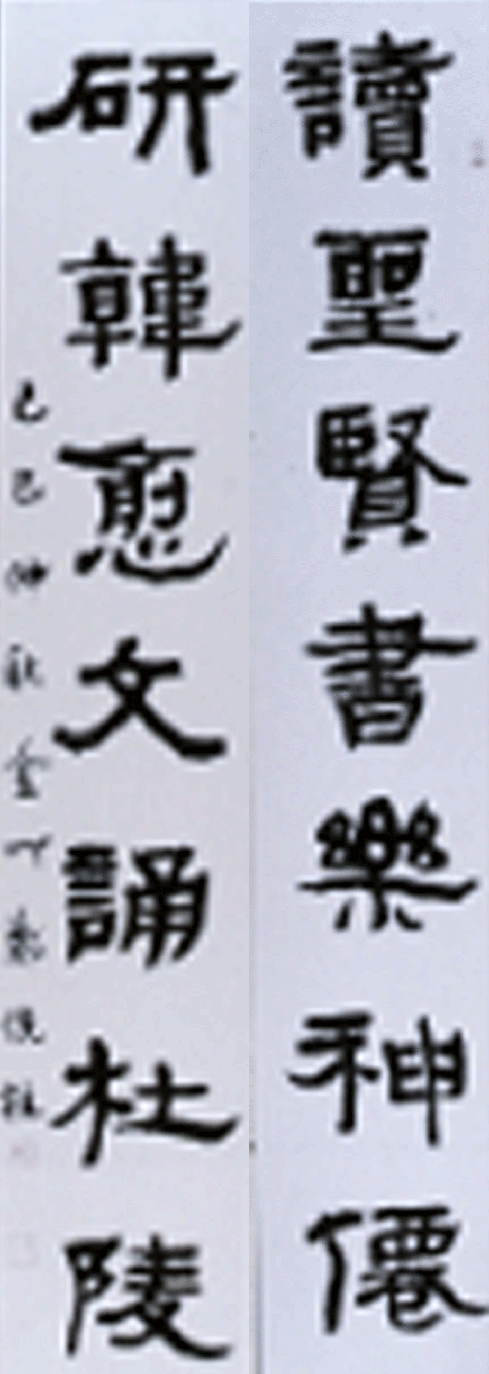 讀聖賢書樂神僊
研韓愈文誦杜陵
己巳仲秋